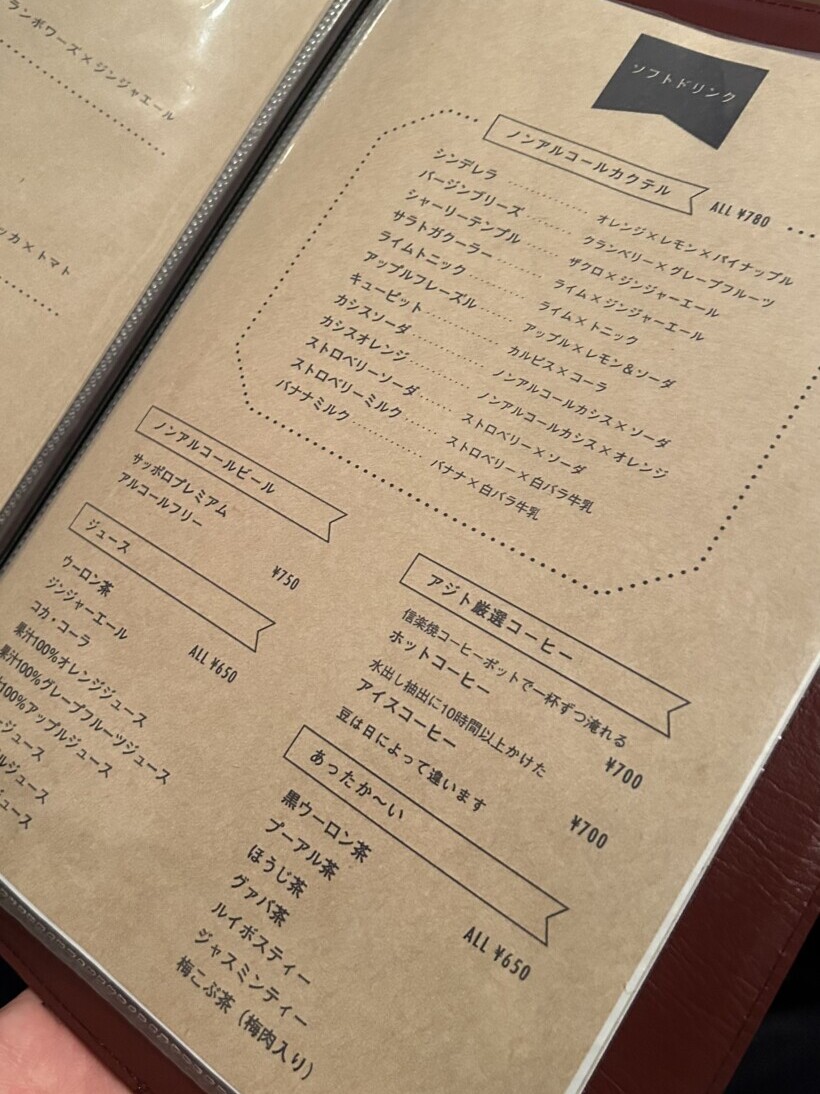 ランボワーズ×ジンジャエール
ッカ×トマト
ソフトドリンク
ノンアルコールカクテル ALL ¥780
シンデレラ オレンジ×レモン×パイナップル
バージンブリーズ クランベリー×グレープフルーツ
シャーリーテンプル ザクロ×ジンジャーエール
サラトガクーラー ライム×ジンジャーエール
ライムトニック ライム×トニック
アップルフレーズル アップル×レモン&ソーダ
キューピット カルピス×コーラ
カシスソーダ ノンアルコールカシス×ソーダ
カシスオレンジ ノンアルコールカシス×オレンジ
ストロベリーソーダ ストロベリー×ソーダ
ストロベリーミルク ストロベリー×白バラ牛乳
バナナミルク バナナ×白バラ牛乳
ノンアルコールビール
サッポロプレミアム
アルコールフリー
¥750
ジュース
ALL ¥650
ウーロン茶
ジンジャーエール
コカ・コーラ
果汁100%オレンジジュース
果汁100%グレープフルーツジュース
100%アップルジュース
ージュース
ルジュース
ュース
アジト厳選コーヒー
信楽焼コーヒーポットで一杯ずつ淹れる
ホットコーヒー
¥700
水出し抽出に10時間以上かけた
アイスコーヒー
¥700
豆は日によって違います
あったか〜い
ALL ¥650
黒ウーロン茶
プーアル茶
ほうじ茶
グァバ茶
ルイボスティー
ジャスミンティー
梅こぶ茶(梅肉入り)